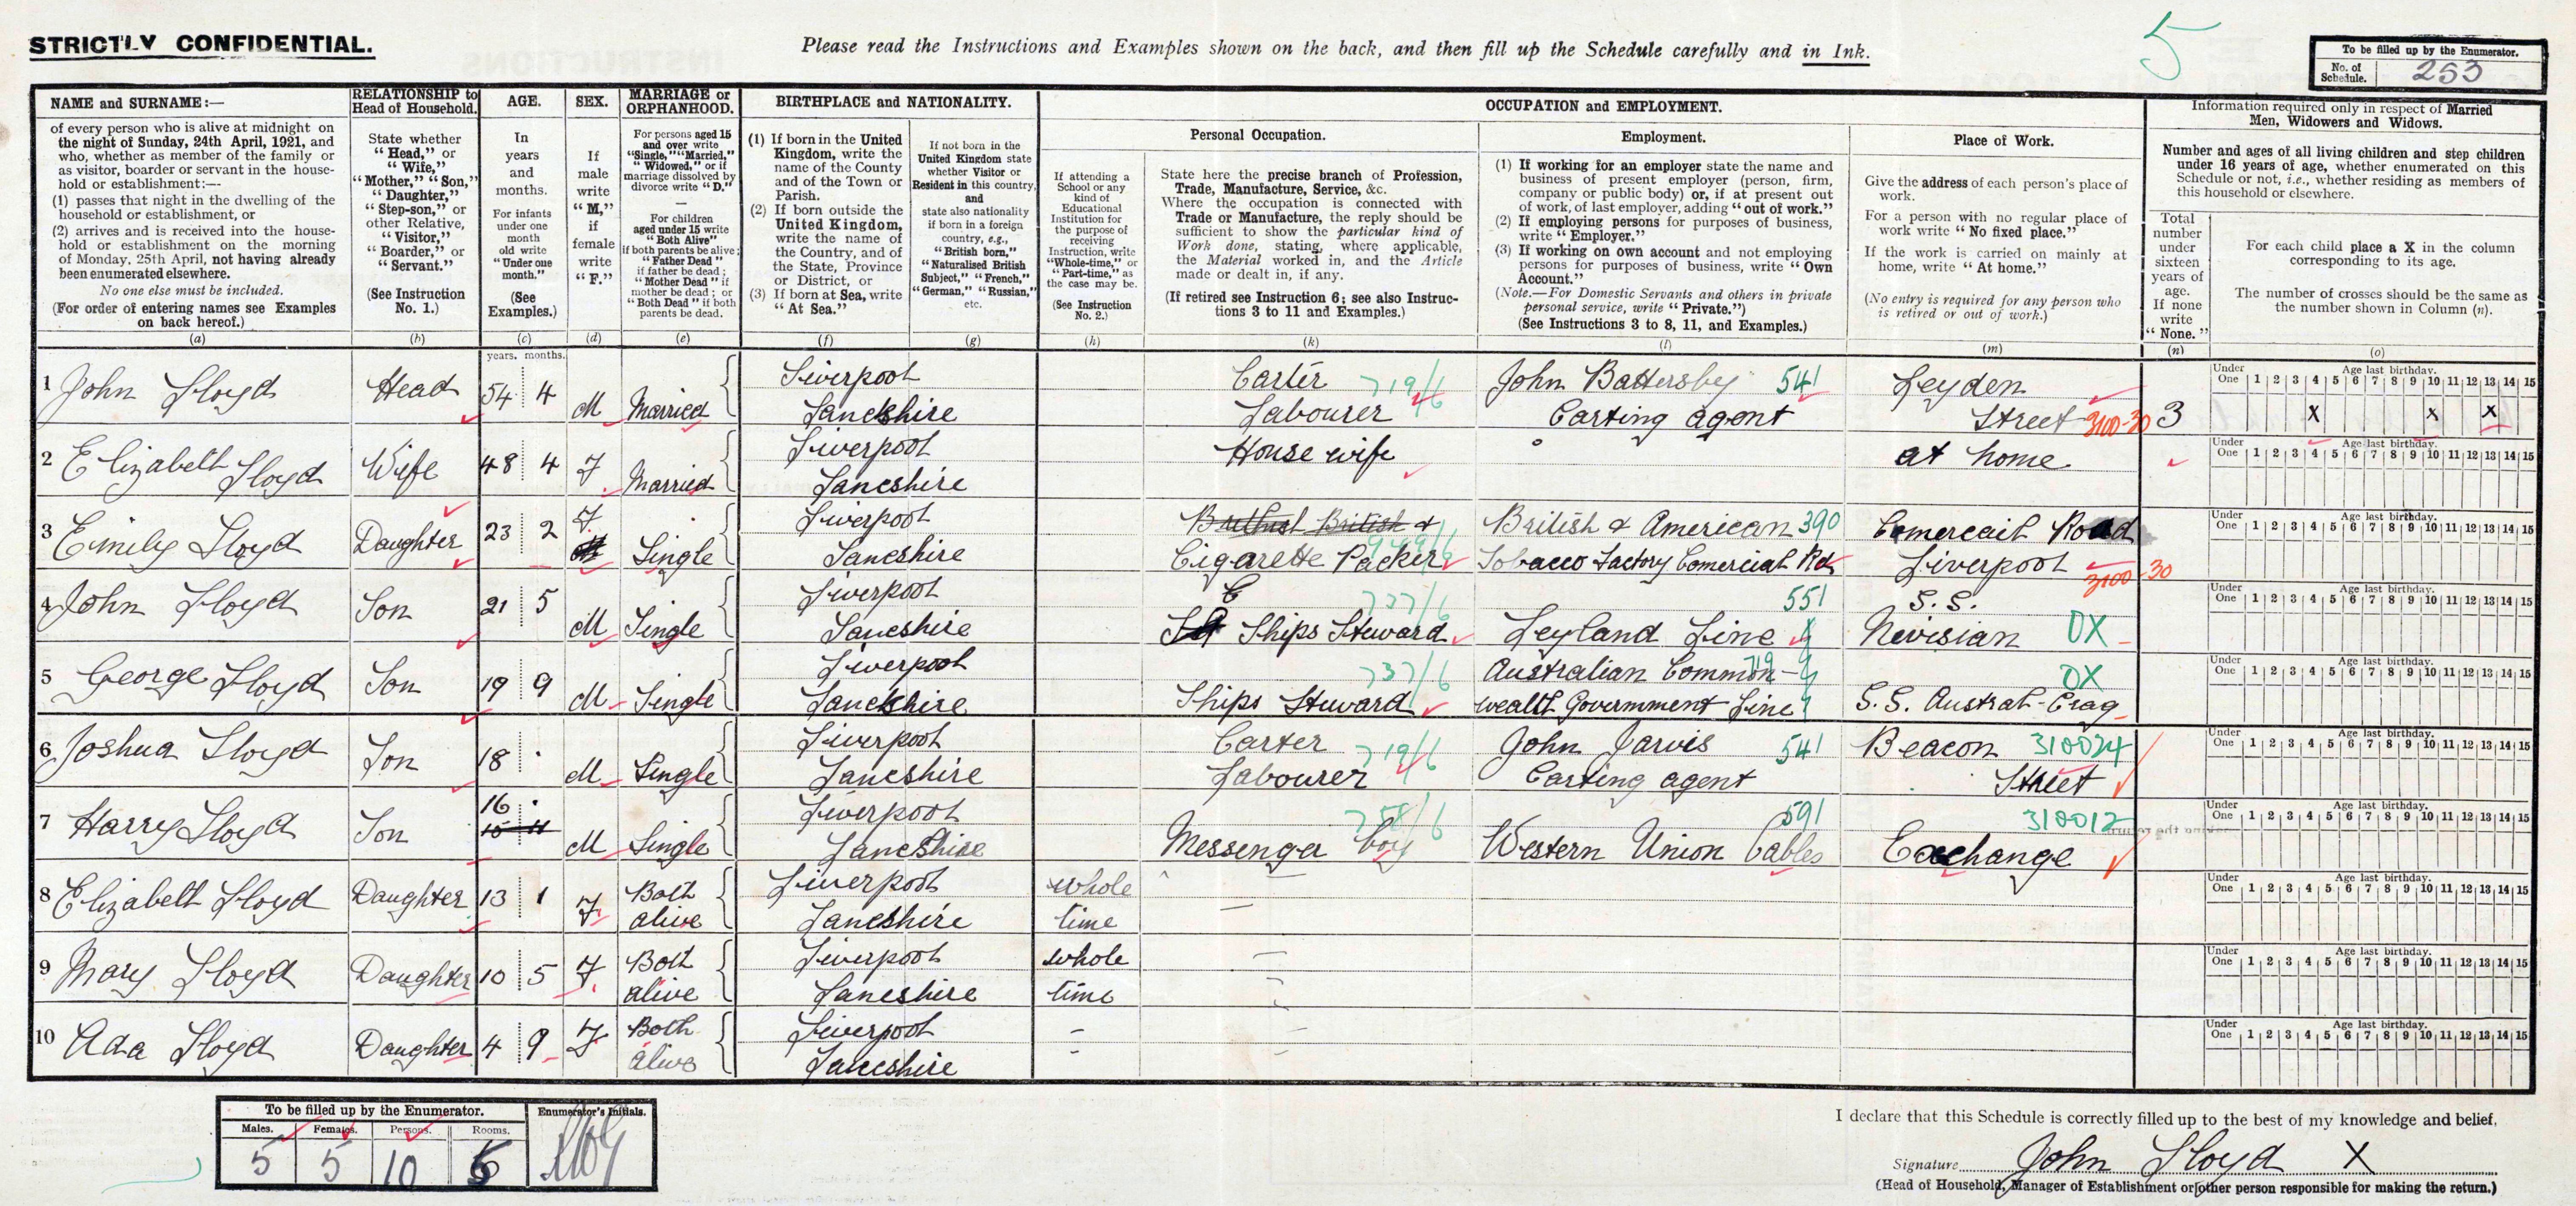 STRICTLY CONFIDENTIAL.
Please read the Instructions and Examples shown on the back, and then fill up the Schedule carefully and in Ink.
5
To be filled up by the Enumerator.
No. of Schedule. 253
NAME and SURNAME:—
of every person who is alive at midnight on
the night of Sunday, 24th April, 1921, and
who, whether as member of the family or
as visitor, boarder or servant in the house-
hold or establishment:—
(1) passes that night in the dwelling of the
household or establishment, or
(2) arrives and is received into the house-
hold or establishment on the morning
of Monday, 25th April, not having already
been enumerated elsewhere.
No one else must be included.
(For order of entering names see Examples
on back hereof.)
(a)
RELATIONSHIP to
Head of Household.
State whether
"Head," or
"Wife,"
"Mother," "Son,"
"Daughter,"
"Step-son," or
other Relative,
"Visitor,"
"Boarder," or
"Servant."
(See Instruction
No. 1.)
(b)
AGE.
In
years
and
months.
For infants
under one
month
old write
"Under one
month."
(See
Examples.)
(c)
SEX.
If
male
write
"M,"
if
female
write
"F."
(d)
MARRIAGE or
ORPHANHOOD.
For persons aged 15
and over write
"Single," "Married,"
"Widowed," or if
marriage dissolved by
divorce write "D."
—
For children
aged under 15 write
"Both Alive"
if both parents be alive;
"Father Dead"
if father be dead;
"Mother Dead" if
mother be dead; or
"Both Dead" if both
parents be dead.
(e)
BIRTHPLACE and NATIONALITY.
(1) If born in the United
Kingdom, write the
name of the County
and of the Town or
Parish.
(2) If born outside the
United Kingdom,
write the name of
the Country, and of
the State, Province
or District, or
(3) If born at Sea, write
"At Sea."
(f)
If not born in the
United Kingdom state
whether Visitor or
Resident in this country,
and
state also nationality
if born in a foreign
country, e.g.,
"British born,"
"Naturalised British
Subject," "French,"
"German," "Russian,"
etc.
(g)
OCCUPATION and EMPLOYMENT.
If attending a
School or any
kind of
Educational
Institution for
the purpose of
receiving
Instruction, write
"Whole-time," or
"Part-time," as
the case may be.
(See Instruction
No. 2.)
(h)
Personal Occupation.
State here the precise branch of Profession,
Trade, Manufacture, Service, &c.
Where the occupation is connected with
Trade or Manufacture, the reply should be
sufficient to show the particular kind of
Work done, stating, where applicable,
the Material worked in, and the Article
made or dealt in, if any.
(If retired see Instruction 6; see also Instruc-
tions 3 to 11 and Examples.)
(k)
Employment.
(1) If working for an employer state the name and
business of present employer (person, firm,
company or public body) or, if at present out
of work, of last employer, adding "out of work."
(2) If employing persons for purposes of business,
write "Employer."
(3) If working on own account and not employing
persons for purposes of business, write "Own
Account."
(Note.—For Domestic Servants and others in private
personal service, write "Private.")
(See Instructions 3 to 8, 11, and Examples.)
(l)
Place of Work.
Give the address of each person's place of
work.
For a person with no regular place of
work write "No fixed place."
If the work is carried on mainly at
home, write "At home."
(No entry is required for any person who
is retired or out of work.)
(m)
Information required only in respect of Married
Men, Widowers and Widows.
Number and ages of all living children and step children
under 16 years of age, whether enumerated on this
Schedule or not, i.e., whether residing as members of
this household or elsewhere.
Total
number
under
sixteen
years of
age.
If none
write
"None."
(n)
For each child place a X in the column
corresponding to its age.
The number of crosses should be the same as
the number shown in Column (n).
(o)
years. months.
Under One Age last birthday. 1 2 3 4 5 6 7 8 9 10 11 12 13 14 15
1 John Lloyd Head 54 4 M Married Liverpool Lancshire Carter Labourer 719/6 John Battersby 541 Carting agent Leyden Street 3100-30 3 X X X
2 Elizabeth Lloyd Wife 48 4 F Married Liverpool Lancshire House wife at home
3 Emily Lloyd Daughter 23 2 F Single Liverpool Lancshire British & Cigarette Packer 949/6 British & American 390 Tobacco Factory Comercial Rd Comercail Road Liverpool 3100-30
4 John Lloyd Son 21 5 M Single Liverpool Lancshire Ships Steward 737/6 Leyland Line 551 S.S. Nevisian OX
5 George Lloyd Son 19 9 M Single Liverpool Lancshire Ships Steward 737/6 Australian Common- 719 wealth Government Line S.S. Austral-Crag OX
6 Joshua Lloyd Son 18 M Single Liverpool Lancshire Carter Labourer 719/6 John Jarvis 541 Carting agent Beacon Street 310024
7 Harry Lloyd Son 16 15 11 M Single Liverpool Lancshire Messenger boy Western Union Cables 591 Exchange 310012
8 Elizabeth Lloyd Daughter 13 1 F Both alive Liverpool Lancshire whole time
9 Mary Lloyd Daughter 10 5 F Both alive Liverpool Lancshire whole time
10 Ada Lloyd Daughter 4 9 F Both alive Liverpool Lancshire
To be filled up by the Enumerator.
Males. Females. Persons. Rooms.
5 5 10
Enumerator's Initials.
I declare that this Schedule is correctly filled up to the best of my knowledge and belief.
Signature John Lloyd X
(Head of Household, Manager of Establishment or other person responsible for making the return.)